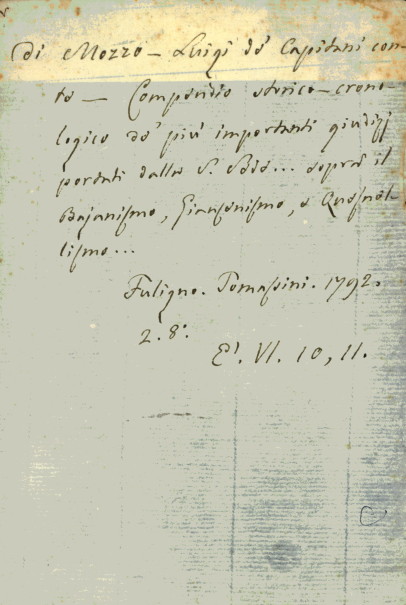 di Mozzo – Luigi de' Capitani con-
te – Compendio storico-crono-
logico de' più importanti giudizj
portati dalla S. Sede... sopra il
Bajanismo, Giansenismo, e Quesnel-
lismo...
Fuligno. Tomassini. 1792.
2. 8°.
E'. VI. 10, 11.